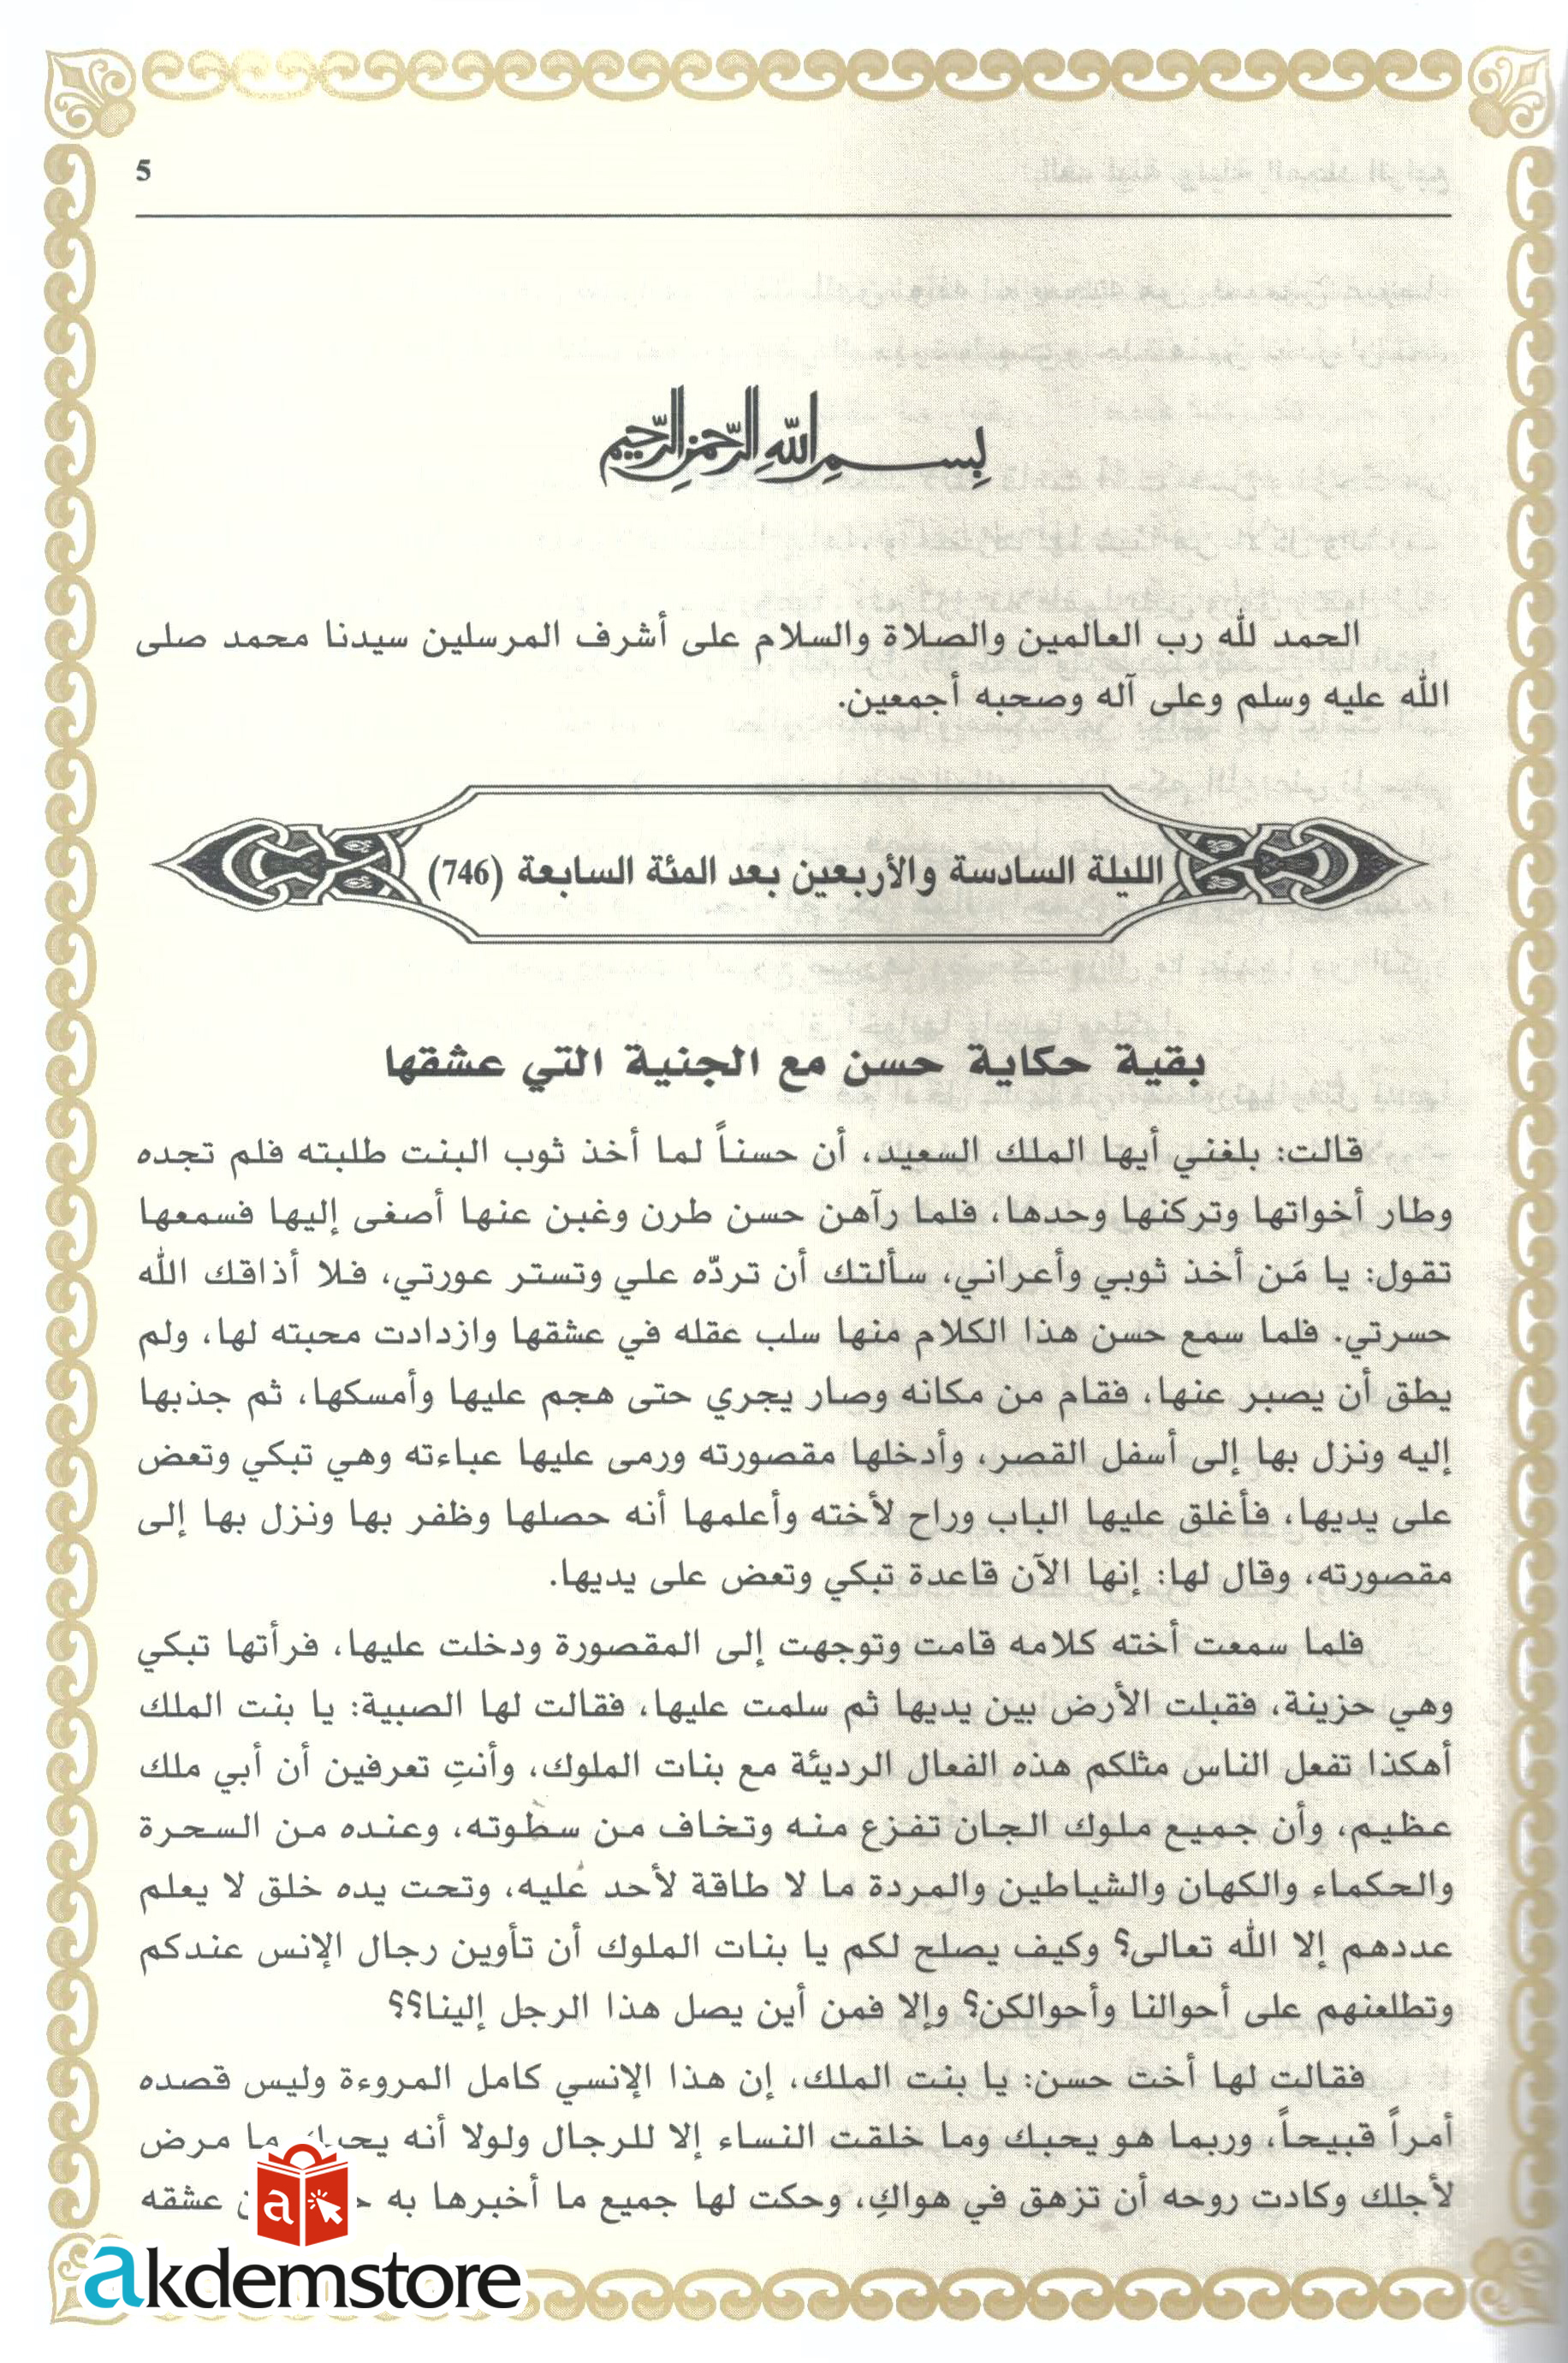 5
بِسمِ اللهِ الرَّحمنِ الرَّحيمِ
الحمد لله رب العالمين والصلاة والسلام على أشرف المرسلين سيدنا محمد صلى
الله عليه وسلم وعلى آله وصحبه أجمعين.
الليلة السادسة والأربعين بعد المئة السابعة (746)
بقية حكاية حسن مع الجنية التي عشقها
قالت: بلغني أيها الملك السعيد، أن حسناً لما أخذ ثوب البنت طلبته فلم تجده
وطار أخواتها وتركنها وحدها، فلما رآهن حسن طرن وغبن عنها أصغى إليها فسمعها
تقول: يا مَن أخذ ثوبي وأعراني، سألتك أن تردّه علي وتستر عورتي، فلا أذاقك الله
حسرتي. فلما سمع حسن هذا الكلام منها سلب عقله في عشقها وازدادت محبته لها، ولم
يطق أن يصبر عنها، فقام من مكانه وصار يجري حتى هجم عليها وأمسكها، ثم جذبها
إليه ونزل بها إلى أسفل القصر، وأدخلها مقصورته ورمى عليها عباءته وهي تبكي وتعض
على يديها، فأغلق عليها الباب وراح لأخته وأعلمها أنه حصلها وظفر بها ونزل بها إلى
مقصورته، وقال لها: إنها الآن قاعدة تبكي وتعض على يديها.
فلما سمعت أخته كلامه قامت وتوجهت إلى المقصورة ودخلت عليها، فرأتها تبكي
وهي حزينة، فقبلت الأرض بين يديها ثم سلمت عليها، فقالت لها الصبية: يا بنت الملك
أهكذا تفعل الناس مثلكم هذه الفعال الرديئة مع بنات الملوك، وأنتِ تعرفين أن أبي ملك
عظيم، وأن جميع ملوك الجان تفزع منه وتخاف من سطوته، وعنده من السحرة
والحكماء والكهان والشياطين والمردة ما لا طاقة لأحد عليه، وتحت يده خلق لا يعلم
عددهم إلا الله تعالى؟ وكيف يصلح لكم يا بنات الملوك أن تأوين رجال الإنس عندكم
وتطلعنهم على أحوالنا وأحوالكن؟ وإلا فمن أين يصل هذا الرجل إلينا؟؟
فقالت لها أخت حسن: يا بنت الملك، إن هذا الإنسي كامل المروءة وليس قصده
أمراً قبيحاً، وربما هو يحبك وما خلقت النساء إلا للرجال ولولا أنه يحبك ما مرض
لأجلك وكادت روحه أن تزهق في هواكِ، وحكت لها جميع ما أخبرها به عشقه
a
akdemstore